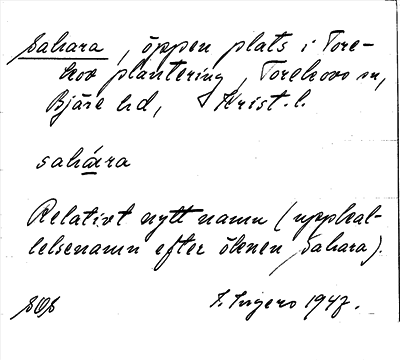 Sahara, öppen plats i Tore-
kov plantering, Torekovs sn,
Bjäre hd, Krist. l.
sahara
Relativt nytt namn (uppkal-
lelsenamn efter öknen Sahara).
1947.